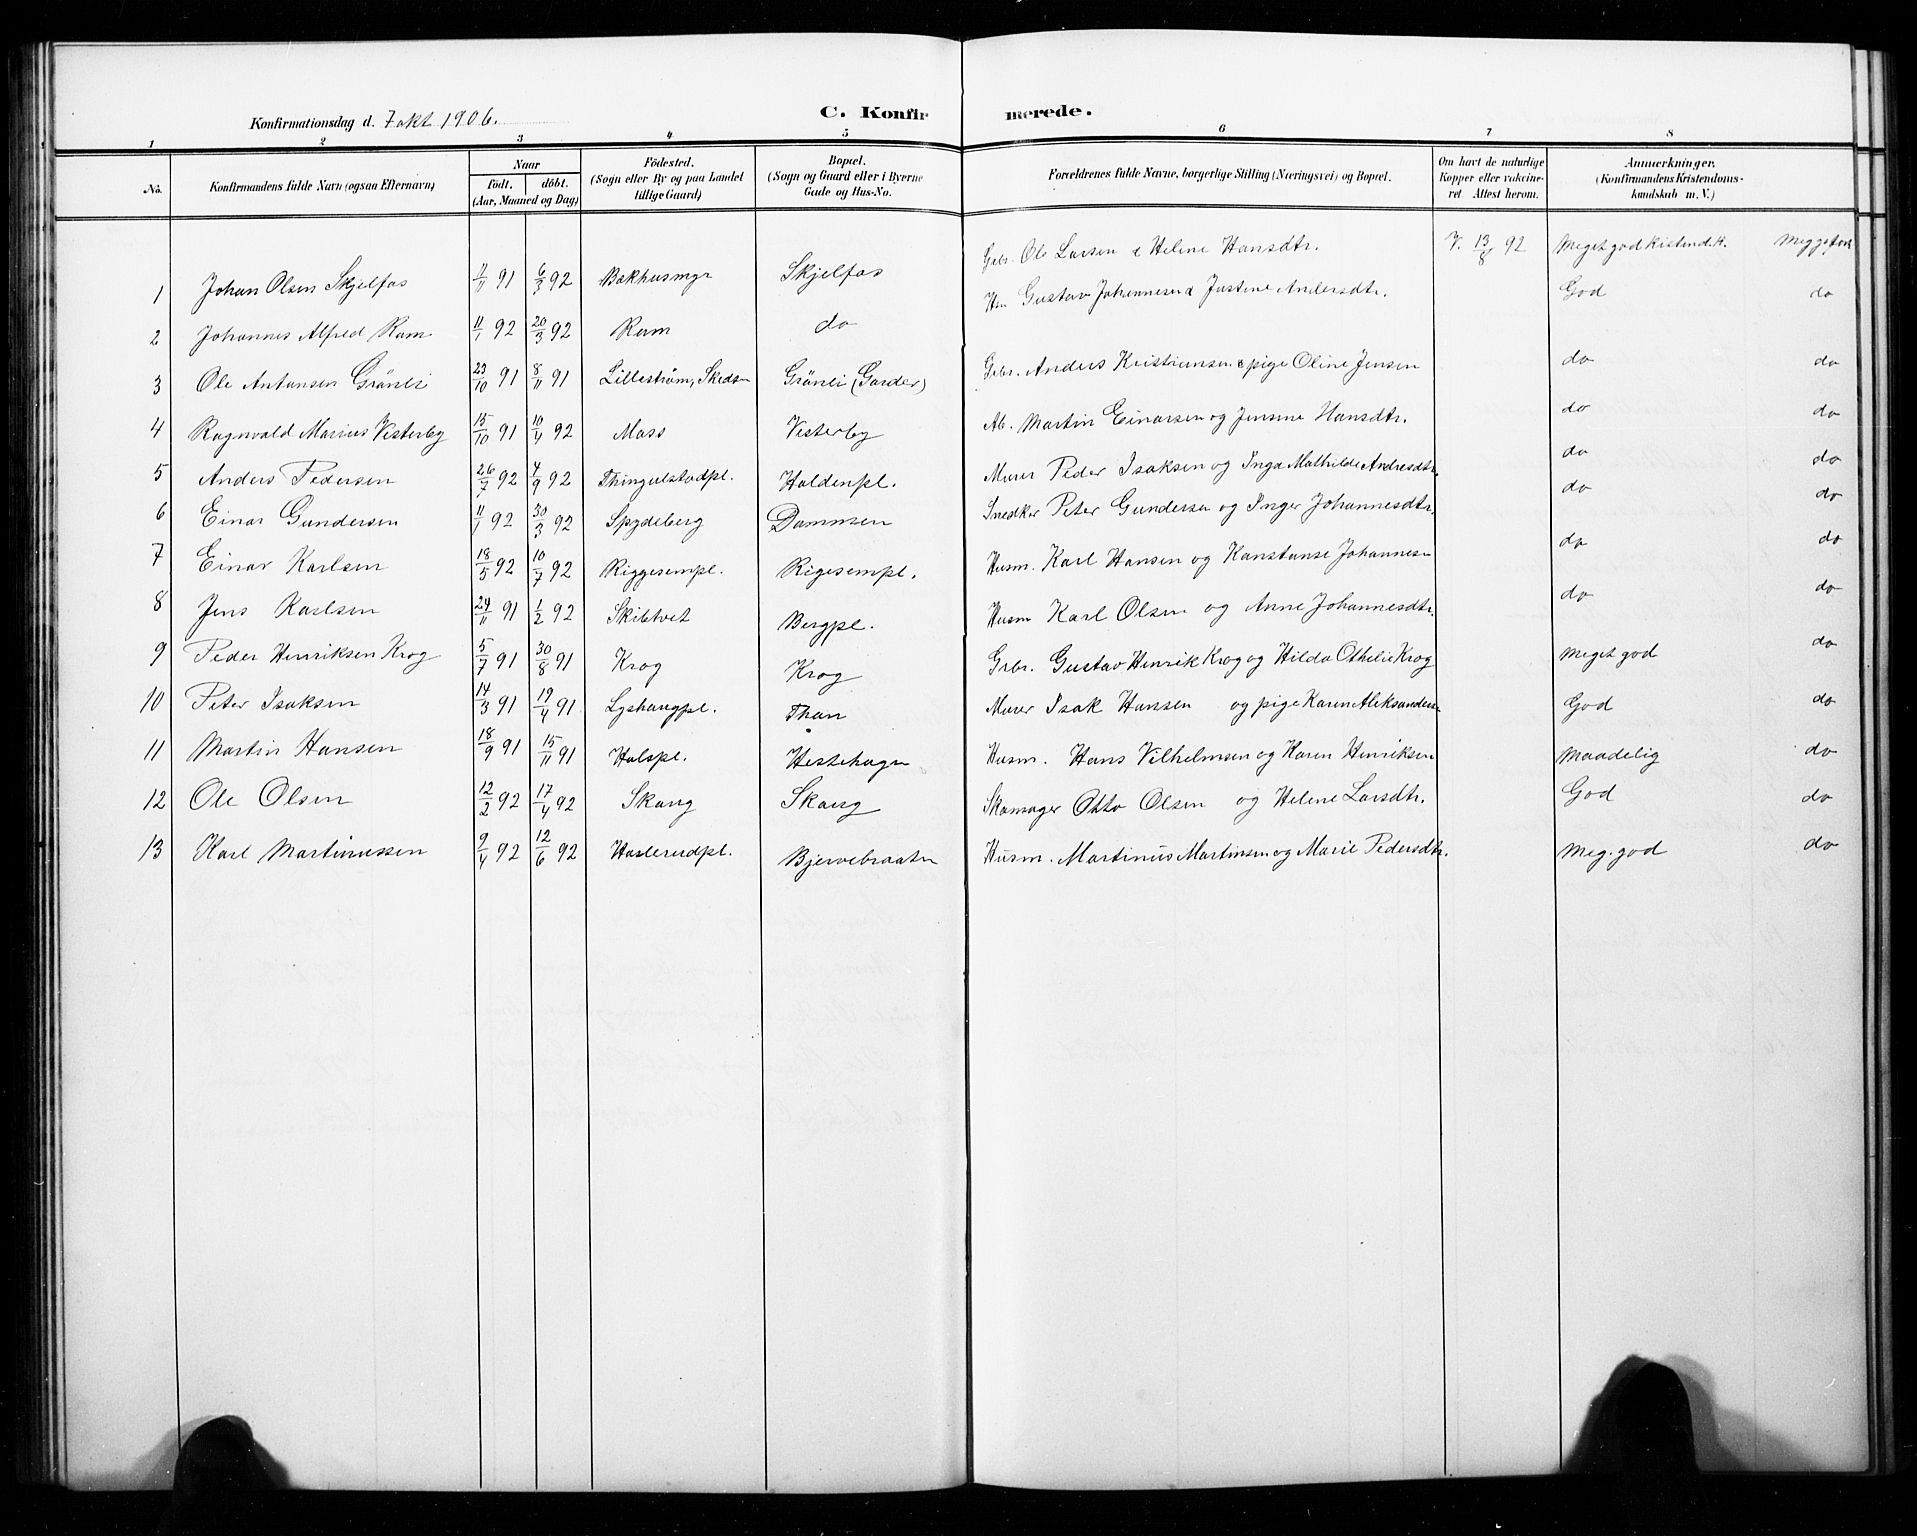 Konfirmationsdag d. 7 okt 1906.
C. Konfirmerede.
1 2 3 4 5 6 7 8
No. Konfirmandens fulde Navn (ogsaa Efternavn) Naar födt. döbt. (Aar, Maaned og Dag) Födested. (Sogn eller By og paa Landet tillige Gaard) Bopæl. (Sogn og Gaard eller i Byerne Gade og Hus-No. Forældrenes fulde Navne, borgerlige Stilling (Næringsvei) og Bopæl. Om havt de naturlige Kopper eller vakcineret Attest herom. Anmerkninger. (Konfirmandens Kristendomskundskab m. V.)
1 Johan Olsen Skjelfos 11/11 91 6/3 92 Bakhusmyr Skjelfos Gbr. Ole Larsen & Helene Hansdtr. V. 13/8 92 Meget god Kistend.k.
2 Johannes Alfred Ram 11/1 92 20/3 92 Ram do Hm Gustav Johannesen & Justine Andersdtr. God do
3 Ole Antonsen Grönli 23/10 91 8/11 91 Lilleström, Skedsm Grönli (Garder) Gbr. Anders Kristiansen & pige Oline Jensen do do
4 Ragnvald Marius Vesterby 15/10 91 10/4 92 Moss Vesterby Ab. Martin Einarsen og Jensine Hansdtr. do do
5 Anders Pedersen 26/7 92 4/9 92 Thingulstadpl. Holdenpl. Murer Peder Isaksen og Inga Mathilde Andresdtr. do do
6 Einar Gundersen 11/1 92 30/3 92 Spydeberg Dammen Snedker Peter Gundersen og Inger Johannesdtr. do do
7 Einar Karlsen 18/5 92 10/7 92 Riggesempl. Rigesempl. Husm. Karl Hansen og Konstanse Johannesn do do
8 Jens Karlsen 24/11 91 1/2 92 Skibtvet Bergpl. Husm Karl Olsen og Anne Johannesdtr. do do
9 Peder Henriksen Krog 5/7 91 30/8 91 Krog Krog Grbr. Gustav Henrik Krog og Hilda Othelie Krog Meget god do
10 Peter Isaksen 14/3 91 19/4 91 Lyshaugpl. Than Murer Isak Hansen og pige Karen Aleksandersn God do
11 Martin Hansen 18/9 91 15/11 91 Holspl. Hestehagen Husm. Hans Vilhelmsen og Karen Henriksen Maadelig do
12 Ole Olsen 12/2 92 17/4 92 Skaug Skaug Skomager Otto Olsen og Helene Larsdtr. God do
13 Karl Martinussen 9/4 92 12/6 92 Haslerudpl. Bjervebraaten Husm. Martinus Martinsen og Marie Pedersdtr. Meg. god do